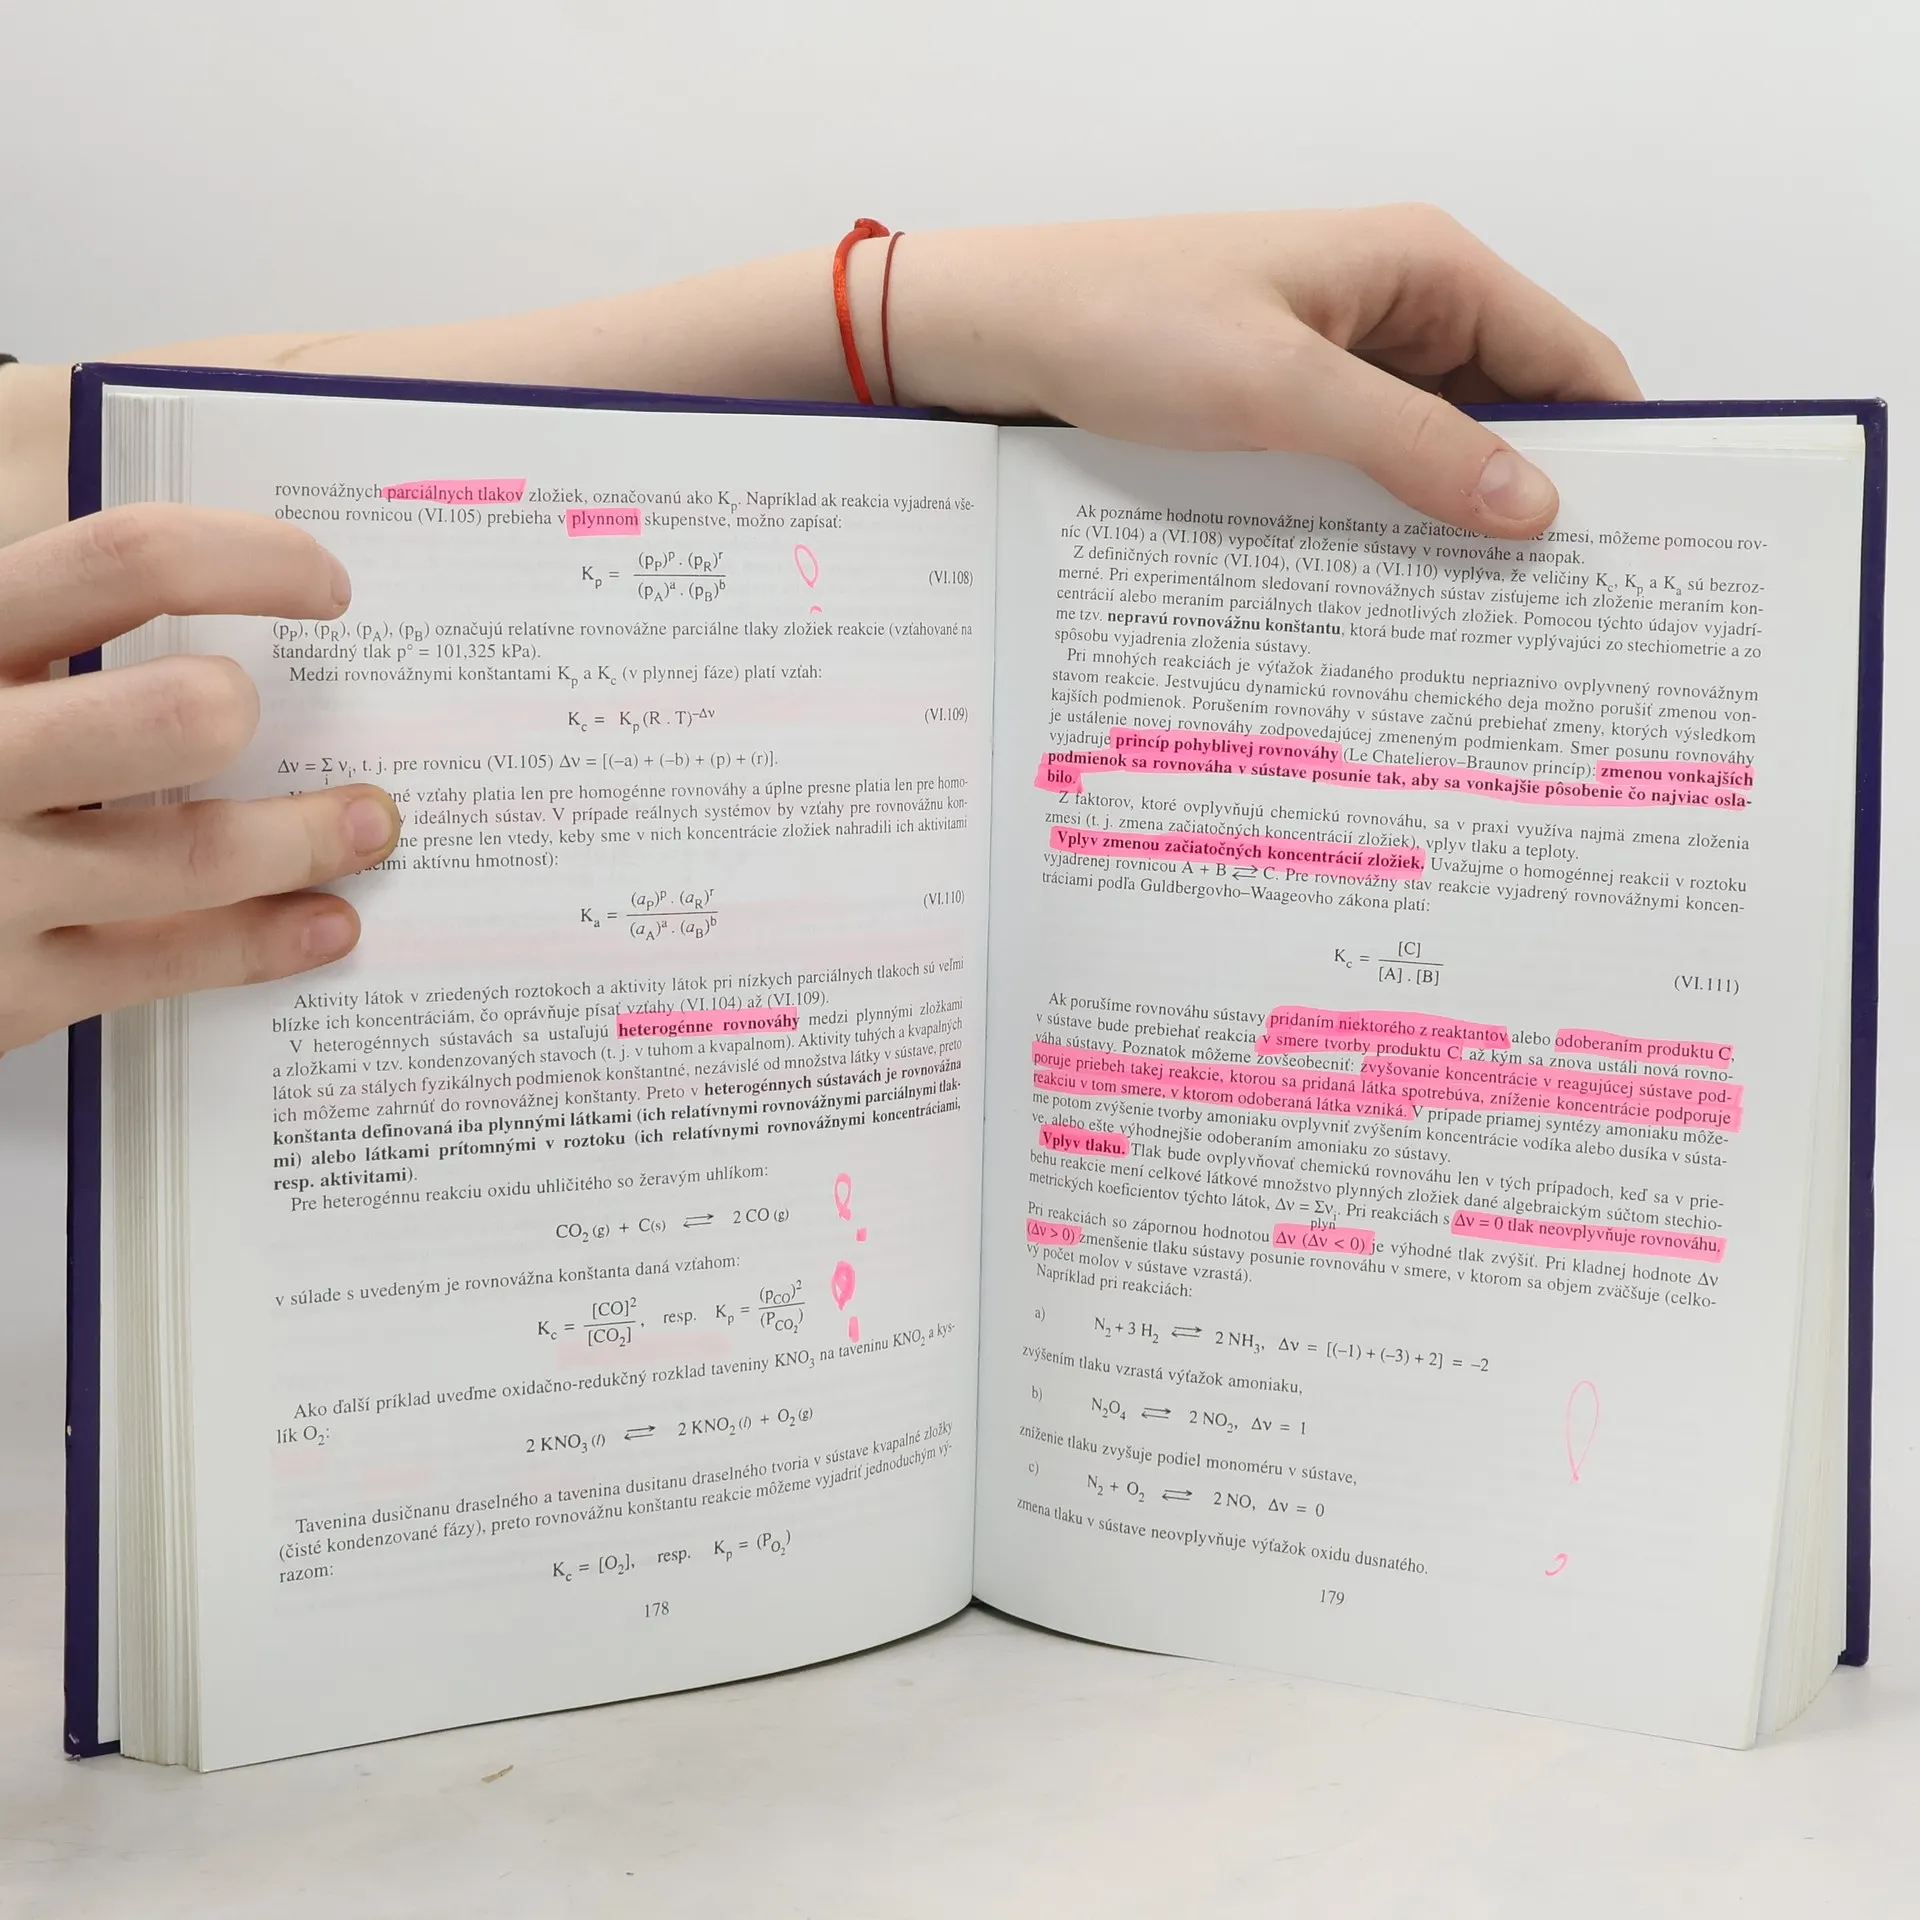 rovnovážnych parciálnych tlakov zložiek, označovanú ako Kₚ. Napríklad ak reakcia vyjadrená vše-
obecnou rovnicou (VI.105) prebieha v plynnom skupenstve, možno zapísať:
Kₚ = (p_P)ᵖ . (p_R)ʳ / (p_A)ᵃ . (p_B)ᵇ (VI.108)
(p_P), (p_R), (p_A), (p_B) označujú relatívne rovnovážne parciálne tlaky zložiek reakcie (vzťahované na
štandardný tlak p° = 101,325 kPa).
Medzi rovnovážnymi konštantami Kₚ a K_c (v plynnej fáze) platí vzťah:
K_c = Kₚ (R . T)^–Δν (VI.109)
Δν = Σ_i ν_i, t. j. pre rovnicu (VI.105) Δν = [(–a) + (–b) + (p) + (r)].
vzťahy platia len pre homogénne rovnováhy a úplne presne platia len pre homo-
ideálnych sústav. V prípade reálnych systémov by vzťahy pre rovnovážnu kon-
presne len vtedy, keby sme v nich koncentrácie zložiek nahradili ich aktivitami
aktívnu hmotnosť):
K_a = (a_P)ᵖ . (a_R)ʳ / (a_A)ᵃ . (a_B)ᵇ (VI.110)
Aktivity látok v zriedených roztokoch a aktivity látok pri nízkych parciálnych tlakoch sú veľmi
blízke ich koncentráciám, čo oprávňuje písať vzťahy (VI.104) až (VI.109).
V heterogénnych sústavách sa ustaľujú heterogénne rovnováhy medzi plynnými zložkami
a zložkami v tzv. kondenzovaných stavoch (t. j. v tuhom a kvapalnom). Aktivity tuhých a kvapalných
látok sú za stálych fyzikálnych podmienok konštantné, nezávislé od množstva látky v sústave, preto
ich môžeme zahrnúť do rovnovážnej konštanty. Preto v heterogénnych sústavách je rovnovážna
konštanta definovaná iba plynnými látkami (ich relatívnymi rovnovážnymi parciálnymi tlak-
mi) alebo látkami prítomnými v roztoku (ich relatívnymi rovnovážnymi koncentráciami,
resp. aktivitami).
Pre heterogénnu reakciu oxidu uhličitého so žeravým uhlíkom:
CO₂ (g) + C(s) ⇄ 2 CO (g)
v súlade s uvedeným je rovnovážna konštanta daná vzťahom:
K_c = [CO]² / [CO₂] , resp. Kₚ = (p_CO)² / (P_CO₂)
Ako ďalší príklad uveďme oxidačno-redukčný rozklad taveniny KNO₃ na taveninu KNO₂ a kys-
lík O₂:
2 KNO₃ (l) ⇄ 2 KNO₂ (l) + O₂ (g)
Tavenina dusičnanu draselného a tavenina dusitanu draselného tvoria v sústave kvapalné zložky
(čisté kondenzované fázy), preto rovnovážnu konštantu reakcie môžeme vyjadriť jednoduchým vý-
razom:
K_c = [O₂], resp. Kₚ = (P_O₂)
178
Ak poznáme hodnotu rovnovážnej konštanty a zmesi, môžeme pomocou rov-
níc (VI.104) a (VI.108) vypočítať zloženie sústavy v rovnováhe a naopak.
Z definičných rovníc (VI.104), (VI.108) a (VI.110) vyplýva, že veličiny K_c, Kₚ a K_a sú bezroz-
merné. Pri experimentálnom sledovaní rovnovážnych sústav zisťujeme ich zloženie meraním kon-
centrácií alebo meraním parciálnych tlakov jednotlivých zložiek. Pomocou týchto údajov vyjadrí-
me tzv. nepravú rovnovážnu konštantu, ktorá bude mať rozmer vyplývajúci zo stechiometrie a zo
spôsobu vyjadrenia zloženia sústavy.
Pri mnohých reakciách je výťažok žiadaného produktu nepriaznivo ovplyvnený rovnovážnym
stavom reakcie. Jestvujúcu dynamickú rovnováhu chemického deja možno porušiť zmenou von-
kajších podmienok. Porušením rovnováhy v sústave začnú prebiehať zmeny, ktorých výsledkom
je ustálenie novej rovnováhy zodpovedajúcej zmeneným podmienkam. Smer posunu rovnováhy
vyjadruje princíp pohyblivej rovnováhy (Le Chatelierov–Braunov princíp): zmenou vonkajších
podmienok sa rovnováha v sústave posunie tak, aby sa vonkajšie pôsobenie čo najviac osla-
bilo.
Z faktorov, ktoré ovplyvňujú chemickú rovnováhu, sa v praxi využíva najmä zmena zloženia
zmesi (t. j. zmena začiatočných koncentrácií zložiek), vplyv tlaku a teploty.
Vplyv zmenou začiatočných koncentrácií zložiek. Uvažujme o homogénnej reakcii v roztoku
vyjadrenej rovnicou A + B ⇄ C. Pre rovnovážny stav reakcie vyjadrený rovnovážnymi koncen-
tráciami podľa Guldbergovho–Waageovho zákona platí:
K_c = [C] / [A] . [B] (VI.111)
Ak porušíme rovnováhu sústavy pridaním niektorého z reaktantov alebo odoberaním produktu C,
v sústave bude prebiehať reakcia v smere tvorby produktu C, až kým sa znova ustáli nová rovno-
váha sústavy. Poznatok môžeme zovšeobecniť: zvyšovanie koncentrácie v reagujúcej sústave pod-
poruje priebeh takej reakcie, ktorou sa pridaná látka spotrebúva, zníženie koncentrácie podporuje
reakciu v tom smere, v ktorom odoberaná látka vzniká. V prípade priamej syntézy amoniaku môže-
me potom zvýšenie tvorby amoniaku ovplyvniť zvýšením koncentrácie vodíka alebo dusíka v sústa-
ve, alebo ešte výhodnejšie odoberaním amoniaku zo sústavy.
Vplyv tlaku. Tlak bude ovplyvňovať chemickú rovnováhu len v tých prípadoch, keď sa v prie-
behu reakcie mení celkové látkové množstvo plynných zložiek dané algebraickým súčtom stechio-
metrických koeficientov týchto látok, Δν = Σν_i. Pri reakciách s Δν = 0 tlak neovplyvňuje rovnováhu.
plyn
Pri reakciách so zápornou hodnotou Δν (Δν < 0) je výhodné tlak zvýšiť. Pri kladnej hodnote Δν
(Δν > 0) zmenšenie tlaku sústavy posunie rovnováhu v smere, v ktorom sa objem zväčšuje (celko-
vý počet molov v sústave vzrastá).
Napríklad pri reakciách:
a) N₂ + 3 H₂ ⇄ 2 NH₃, Δν = [(–1) + (–3) + 2] = –2
zvýšením tlaku vzrastá výťažok amoniaku,
b) N₂O₄ ⇄ 2 NO₂, Δν = 1
zníženie tlaku zvyšuje podiel monoméru v sústave,
c) N₂ + O₂ ⇄ 2 NO, Δν = 0
zmena tlaku v sústave neovplyvňuje výťažok oxidu dusnatého.
179